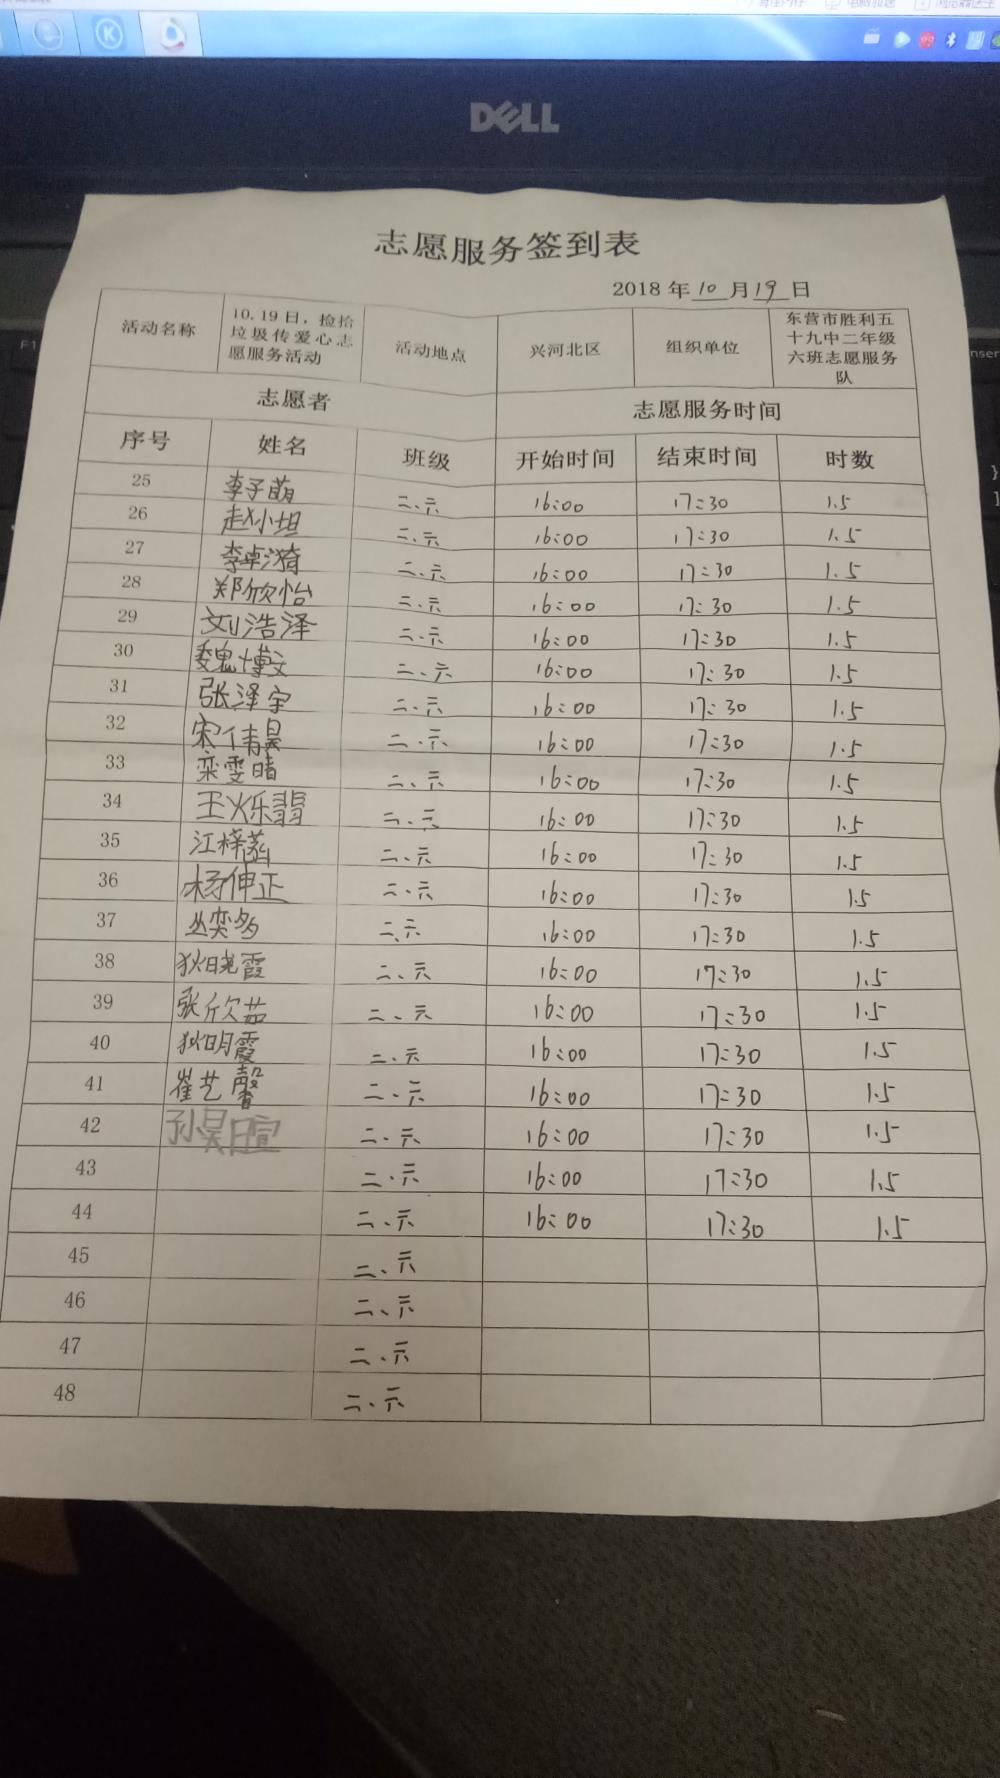 DELL
志愿服务签到表
2018 年 10 月 19 日
活动名称 10.19 日，捡拾垃圾传爱心志愿服务活动 活动地点 兴河北区 组织单位 东营市胜利五十九中二年级六班志愿服务队
志愿者 志愿服务时间
序号 姓名 班级 开始时间 结束时间 时数
25 李子萌 二、六 16:00 17:30 1.5
26 赵小坦 二、六 16:00 17:30 1.5
27 李卓漪 二、六 16:00 17:30 1.5
28 郑欣怡 二、六 16:00 17:30 1.5
29 刘浩泽 二、六 16:00 17:30 1.5
30 魏博文 二、六 16:00 17:30 1.5
31 张泽宇 二、六 16:00 17:30 1.5
32 宋倩昊 二、六 16:00 17:30 1.5
33 栾雯晴 二、六 16:00 17:30 1.5
34 王烁翡 二、六 16:00 17:30 1.5
35 江梓菡 二、六 16:00 17:30 1.5
36 杨伸正 二、六 16:00 17:30 1.5
37 丛奕多 二、六 16:00 17:30 1.5
38 狄晓霞 二、六 16:00 17:30 1.5
39 张欣茹 二、六 16:00 17:30 1.5
40 狄明霞 二、六 16:00 17:30 1.5
41 崔艺馨 二、六 16:00 17:30 1.5
42 孙昊暄 二、六 16:00 17:30 1.5
43 二、六 16:00 17:30 1.5
44 二、六 16:00 17:30 1.5
45 二、六
46 二、六
47 二、六
48 二、六